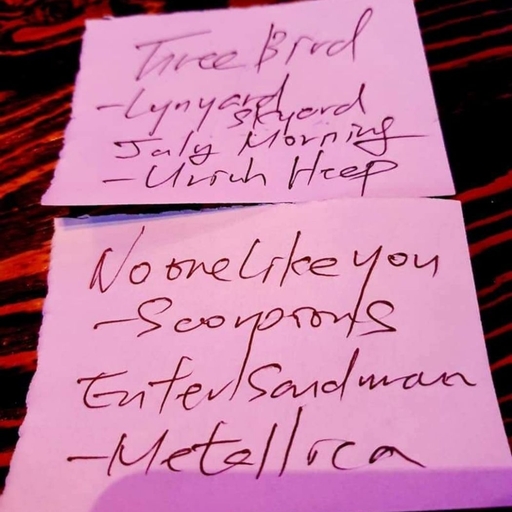 Three Bird
-Lynyard
Skyard
July Morning
-Urich Heep
No one like you
-Scorpions
Enter Sandman
-Metallica